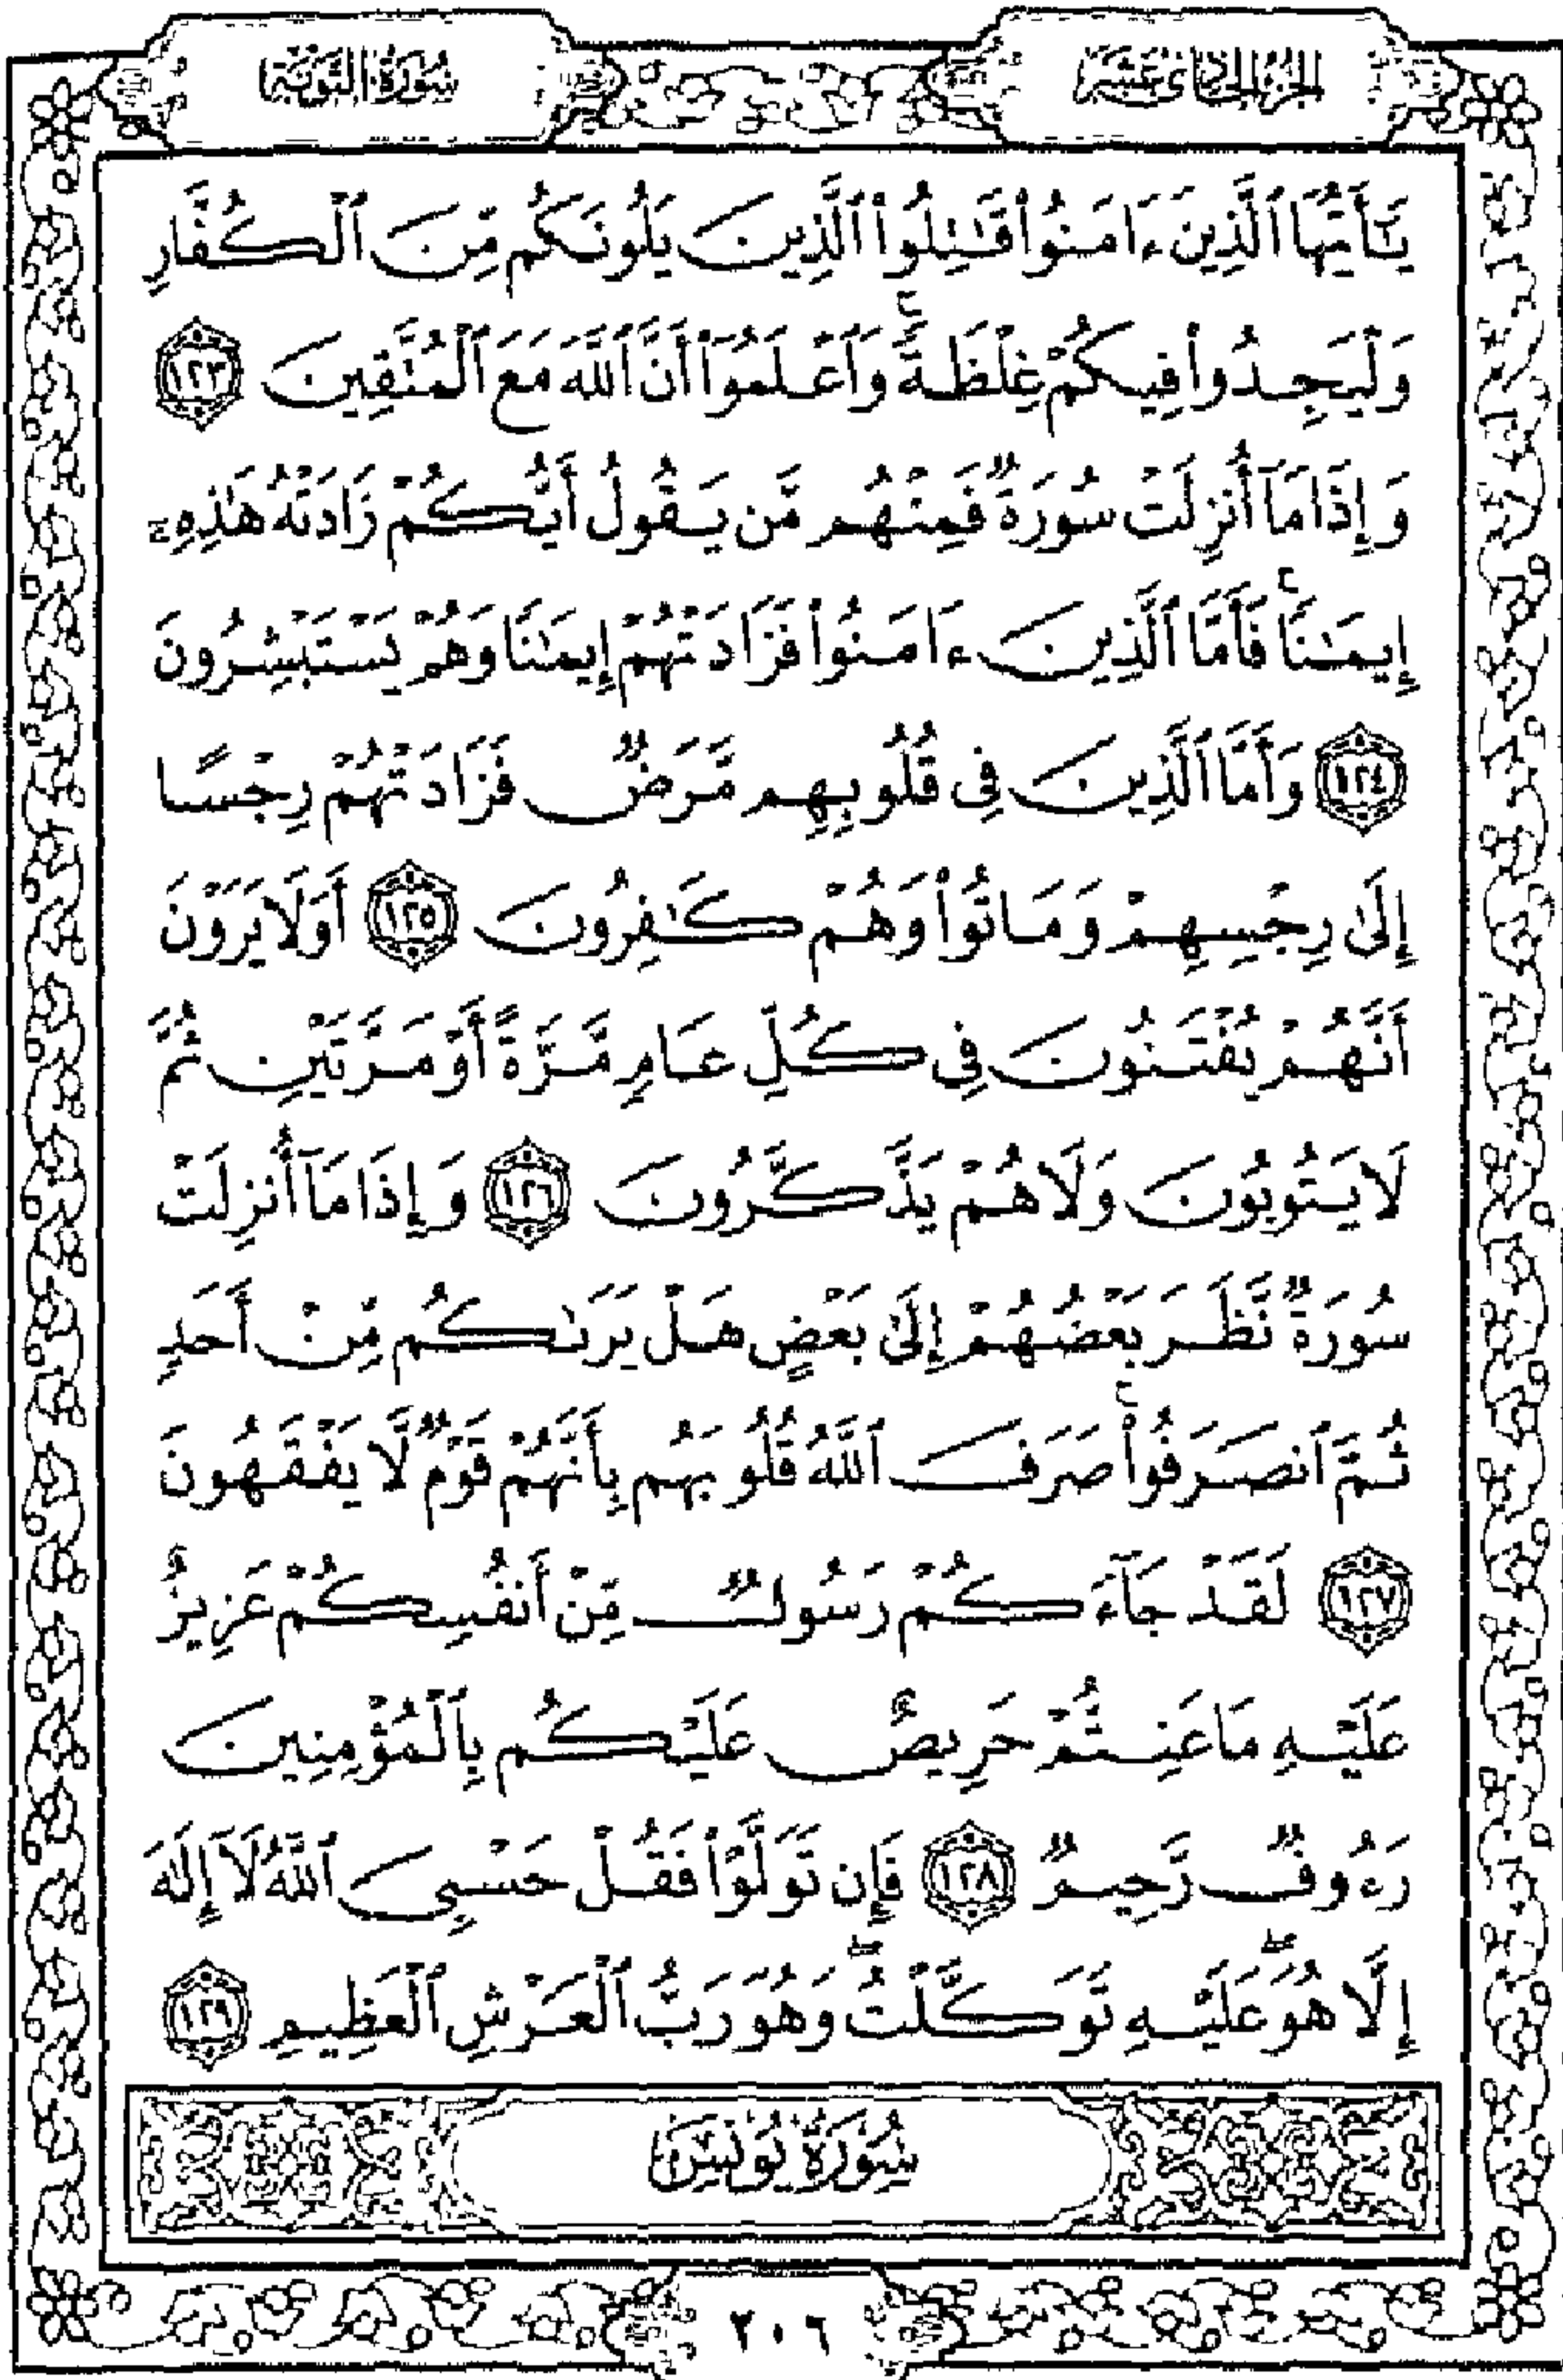 الجزء الحادي عشر
سورة التوبة
يَٰٓأَيُّهَا ٱلَّذِينَ ءَامَنُوا۟ قَٰتِلُوا۟ ٱلَّذِينَ يَلُونَكُم مِّنَ ٱلْكُفَّارِ
وَلْيَجِدُوا۟ فِيكُمْ غِلْظَةً ۚ وَٱعْلَمُوٓا۟ أَنَّ ٱللَّهَ مَعَ ٱلْمُتَّقِينَ ١٢٣
وَإِذَا مَآ أُنزِلَتْ سُورَةٌ فَمِنْهُم مَّن يَقُولُ أَيُّكُمْ زَادَتْهُ هَٰذِهِۦٓ
إِيمَٰنًا ۚ فَأَمَّا ٱلَّذِينَ ءَامَنُوا۟ فَزَادَتْهُمْ إِيمَٰنًا وَهُمْ يَسْتَبْشِرُونَ
١٢٤ وَأَمَّا ٱلَّذِينَ فِى قُلُوبِهِم مَّرَضٌ فَزَادَتْهُمْ رِجْسًا
إِلَىٰ رِجْسِهِمْ وَمَاتُوا۟ وَهُمْ كَٰفِرُونَ ١٢٥ أَوَلَا يَرَوْنَ
أَنَّهُمْ يُفْتَنُونَ فِى كُلِّ عَامٍ مَّرَّةً أَوْ مَرَّتَيْنِ ثُمَّ
لَا يَتُوبُونَ وَلَا هُمْ يَذَّكَّرُونَ ١٢٦ وَإِذَا مَآ أُنزِلَتْ
سُورَةٌ نَّظَرَ بَعْضُهُمْ إِلَىٰ بَعْضٍ هَلْ يَرَىٰكُم مِّنْ أَحَدٍ
ثُمَّ ٱنصَرَفُوا۟ ۚ صَرَفَ ٱللَّهُ قُلُوبَهُم بِأَنَّهُمْ قَوْمٌ لَّا يَفْقَهُونَ
١٢٧ لَقَدْ جَآءَكُمْ رَسُولٌ مِّنْ أَنفُسِكُمْ عَزِيزٌ
عَلَيْهِ مَا عَنِتُّمْ حَرِيصٌ عَلَيْكُم بِٱلْمُؤْمِنِينَ
رَءُوفٌ رَّحِيمٌ ١٢٨ فَإِن تَوَلَّوْا۟ فَقُلْ حَسْبِىَ ٱللَّهُ لَآ إِلَٰهَ
إِلَّا هُوَ ۖ عَلَيْهِ تَوَكَّلْتُ ۖ وَهُوَ رَبُّ ٱلْعَرْشِ ٱلْعَظِيمِ ١٢٩
سُورَةُ يُونُسَ
٢٠٦